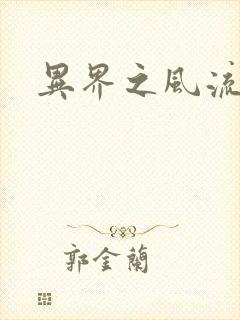 異界之風流
郭金蘭